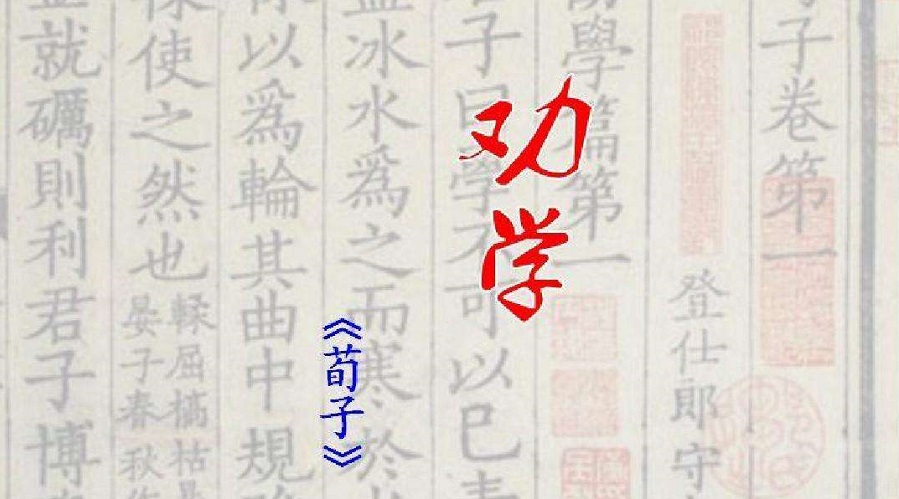 劝学
《荀子》
子卷第一
登仕郎守
學篇第一
子曰學不可以已
冰水爲之而寒於
以爲輪其曲中規
使之然也
輮屈槁枯
晏子春秋
就礪則利君子博